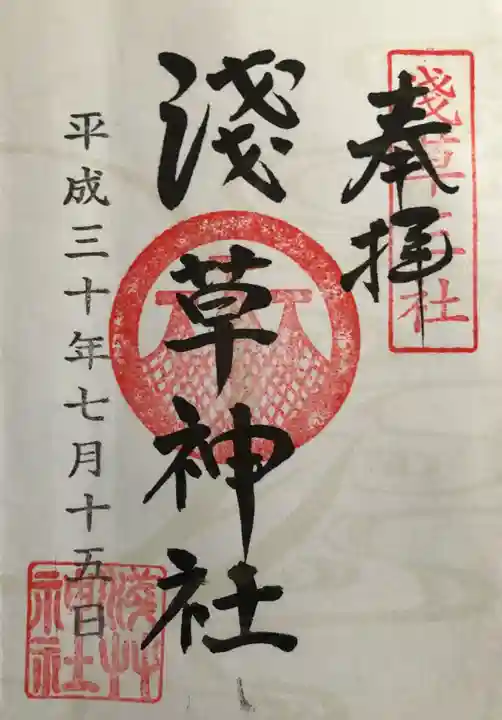 奉拝
淺草三社
淺草神社
平成三十年七月十五日
淺草
神社